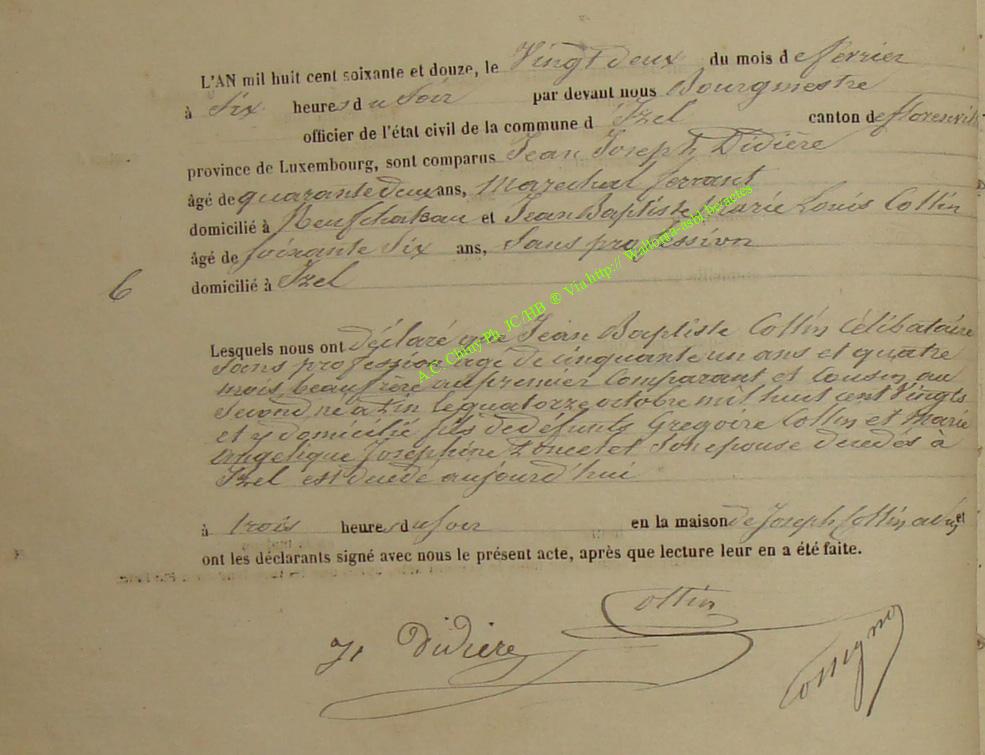 L'AN mil huit cent soixante et douze, le Vingt deux du mois de fevrier
à Six heures du Soir par devant nous Bourgmestre
officier de l'état civil de la commune d Izel canton de florenville
province de Luxembourg, sont comparus Jean Joseph Didière
âgé de quarante deux ans, Marechal ferrant
domicilié à Neufchateau et Jean Baptiste Marie Louis Collin
âgé de soixante Six ans, Sans profession
6 domicilié à Izel
Lesquels nous ont déclaré que Jean Baptiste Collin Célibataire
Sans profession agé de cinquante un ans et quatre
mois, beau frère au premier Comparant et Cousin au
Second né a le quatorze octobre mil huit cent Vingts
et y domicilié fils de défunts Gregoire Collin et Marie
Angelique Joséphine Poncelet Son epouse decedes à
Izel est decedé aujourd'hui
à trois heures du Soir en la maison de Joseph Collin et
ont les déclarants signé avec nous le présent acte, après que lecture leur en a été faite.
Collin
Jp Didiere
A.C. Chiny Ph. JC /HB ® Via http:// Wallonia-asbl.be/actes